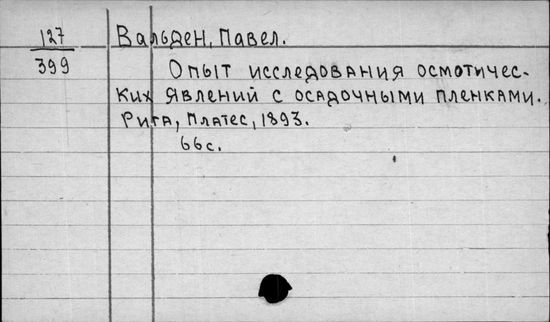 127 Вальден, Павел.
399 Опыт исследования осмотичес-
ких явлений с осадочными пленками.
Рига, Платес, 1893.
66с.